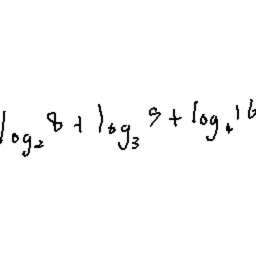 log₂8 + log₃5 + log₄16